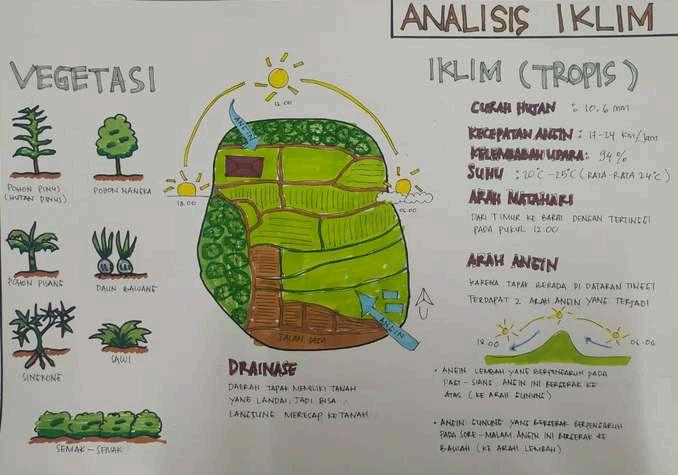 ANALISIS IKLIM
VEGETASI
POHON PINUS
(HUTAN PINUS)
POHON NANGKA
POHON PISANG
DAUN BAWANG
SINGKONG
SAWI
SEMAK - SEMAK
12.00
ANGIN
18.00
06.00
ANGIN
JALAN DESA
DRAINASE
DAERAH TAPAK MEMILIKI TANAH
YANG LANDAI, JADI BISA
LANGSUNG MERESAP KE TANAH
IKLIM (TROPIS)
CURAH HUJAN : 10.6 mm
KECEPATAN ANGIN : 17-24 Km/Jam
KELEMBABAN UDARA : 94%
SUHU : 20°C - 25°C (RATA-RATA 24°C)
ARAH MATAHARI
DARI TIMUR KE BARAT DENGAN TERTINGGI
PADA PUKUL 12.00
ARAH ANGIN
KARENA TAPAK BERADA DI DATARAN TINGGI
TERDAPAT 2 ARAH ANGIN YANG TERJADI
18.00
06.00
• ANGIN LEMBAH YANG BERPENGARUH PADA
PAGI - SIANG, ANGIN INI BERGERAK KE
ATAS (KE ARAH GUNUNG)
• ANGIN GUNUNG YANG BERGERAK BERPENGARUH
PADA SORE - MALAM. ANGIN INI BERGERAK KE
BAWAH (KE ARAH LEMBAH)